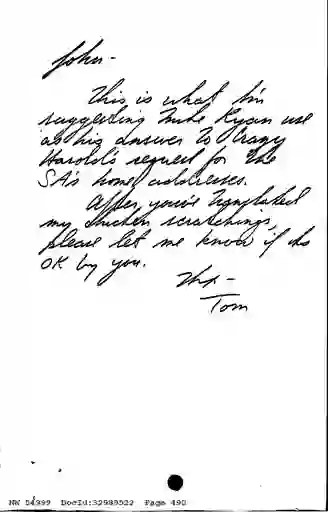 John-
This is what I'm
suggesting Mike Ryan use
as his answer to Crazy
Harold's request for the
SA's home addresses.
After you've translated
my chicken scratchings,
please let me know if its
OK by you.
Thx-
Tom
NW 54999 DocId:32989522 Page 490